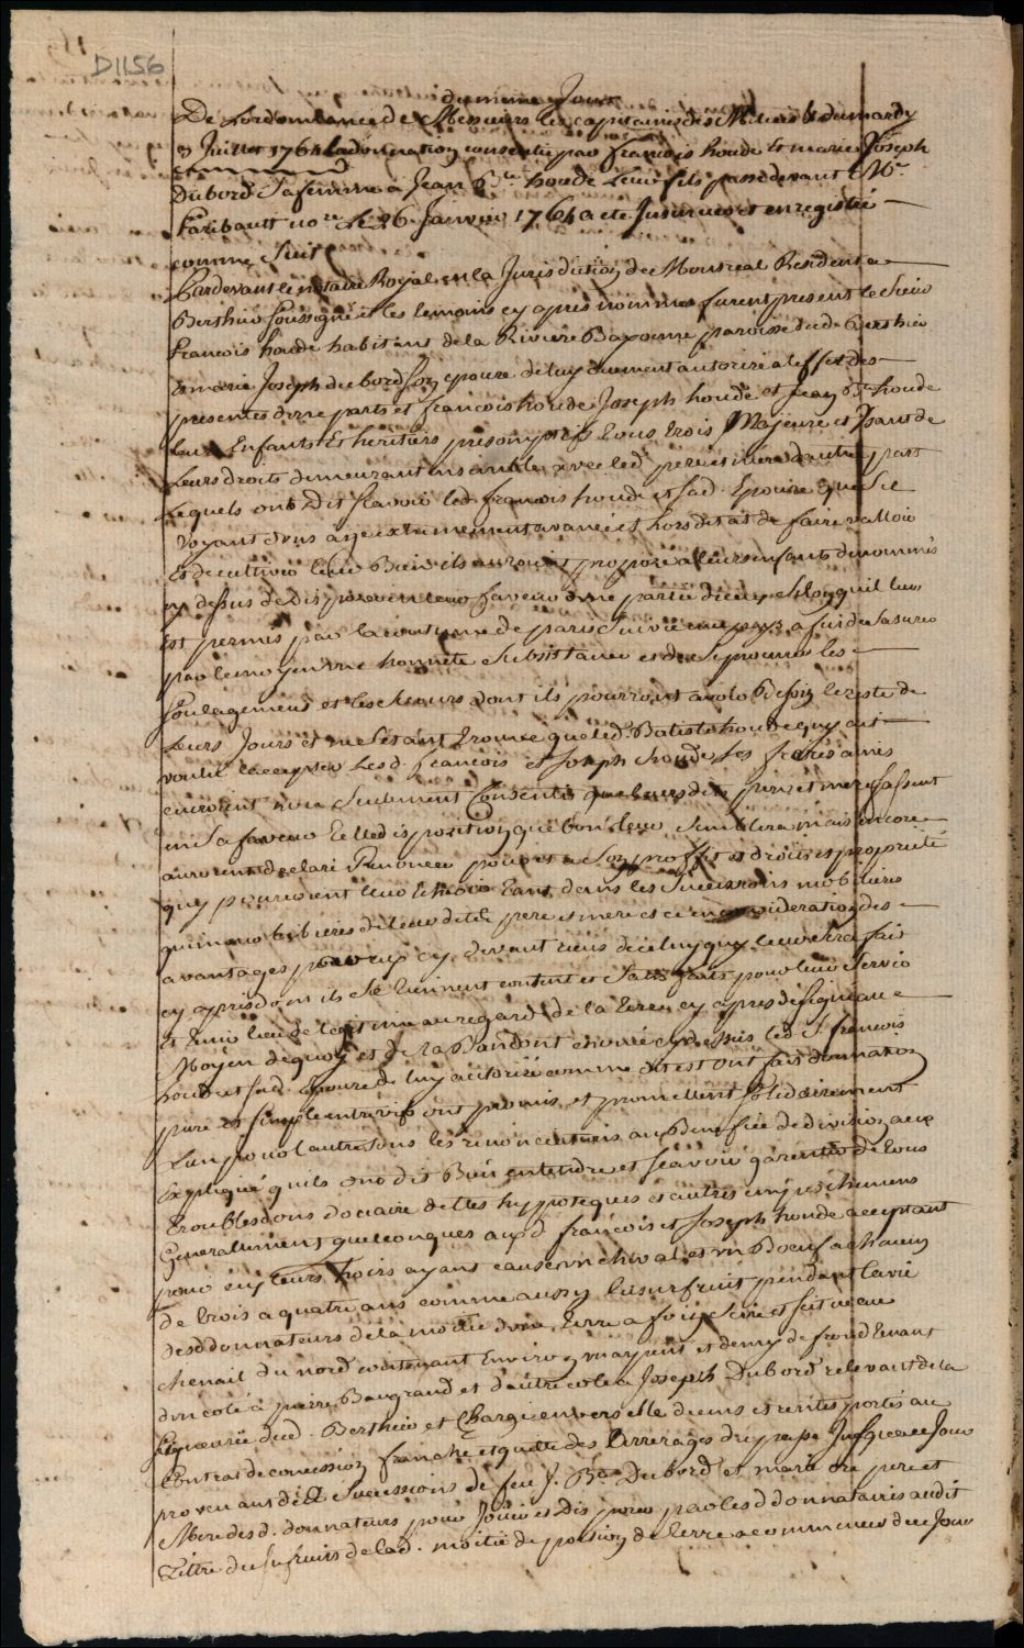 D1156
du meme Jour
De Lordonnance de Messieurs les capitaines des Milices du mardy
3 Juillet 1764 la donnation consentie par francois houde & marie Joseph
Dubord Sa femme a Jean Bte. houde Leur fils passé devant Me.
faribault nore. Le 26 Janvier 1764 a ete Insinuée et enregistré
comme Suit
Pardevant le notaire Royal en la Jurisdiction de Montreal Resident a
Berthier Soussigné et les temoins cy apres nommés furent present le Sieur
francois houde habitant de la Riviere Bayonne paroisse dud. Berthier
& marie Joseph dubord Son epouse de luy duement autorisé a leffet des
presentes dune part et francois houde Joseph houde et Jean Bte. houde
leurs Enfants Et heritiers presomptifs tous trois Majeurs et Usants de
Leurs droits demeurant ensemble avec led. pere et mere dautre part
Lequels ont Dit Scavoir led. francois houde et Sad. Epouse que Se
voyant dans age extremement avancé et hors detat de faire valloir
Et de cultiver leur Bien ils auroient proposé a leurs enfants denommés
cy dessus de Disposer en leur faveur dune partie diceux Selon quil leur
Est permis par la coutume de paris Suivie en ce pays afin de Sasurer
par le moyen une honnete Subsistance et de Se procurer les
Soulagemens et les Secours dont ils pourront avoir Besoin le reste de
Leurs Jours et ne S'etant trouvé que led. Batiste houde quy ait
voulu laccepter Lesd. francois et Joseph houde Ses freres ainés
auroient non Seulement Consentis que leurs dits pere et mere fassent
en Sa faveur telle disposition que bon leur Semblera mais Encore
auroient declaré Renoncer pour et a Son proffit es droits et proprieté
quy pouroient leur Echoir Tant dans les Successions mobiliaires
quimmobiliaires de leur dits pere et mere et ce en consideration des
avantages pour eux cy devant reçus de celuy quy leur Sera fait
cy apres dont ils Se tiennent content et Satisfaits pour leur Servir
Et tenir lieu de legitime au regard de la terre cy apres designée au
Moyen dequoy et de labandont enoncé cy dessus led. S. francois
houde et Sad. Epouse de luy autorisé comme dit est Ont fait donnation
pure et Simple entrevifs ont promis et promettent Solidairement
Lun pour lautre Sous les renonciations au Benefice de division a eux
Expliqué quils ont dit Bien entendre et Scavoir garentir de tous
troubles dons doüaire dettes hyppoteques et autres empeschemens
Generallement quelconques auxd. francois et Joseph houde acceptant
pour eux leurs hoirs ayans cause un cheval et un Bœuf a chacun
De trois a quatre ans comme aussy lusurfruit pendant la vie
Desd donnateurs de la moitié dune terre a foin Scise et Situé au
chenail du nord contenant Environ un arpent et demy de frond tenant
dun coté a pierre Baugrand et dautre coté a Joseph Dubord relevant de la
Seigneurie dud. Berthier et Chargé envers elle du cens et rentes portés au
Contrat de concession franche et quitte des Arrerages du passé Jusqua ce Jour
provenans des Successions de feu J. Bte. Dubord et marie pere et
Mere desd. donnateurs pour Jouir et Disposer par lesd donnatairis audit
Tittre dusufruit de lad. moitié de portion de terre a commencer de ce Jour